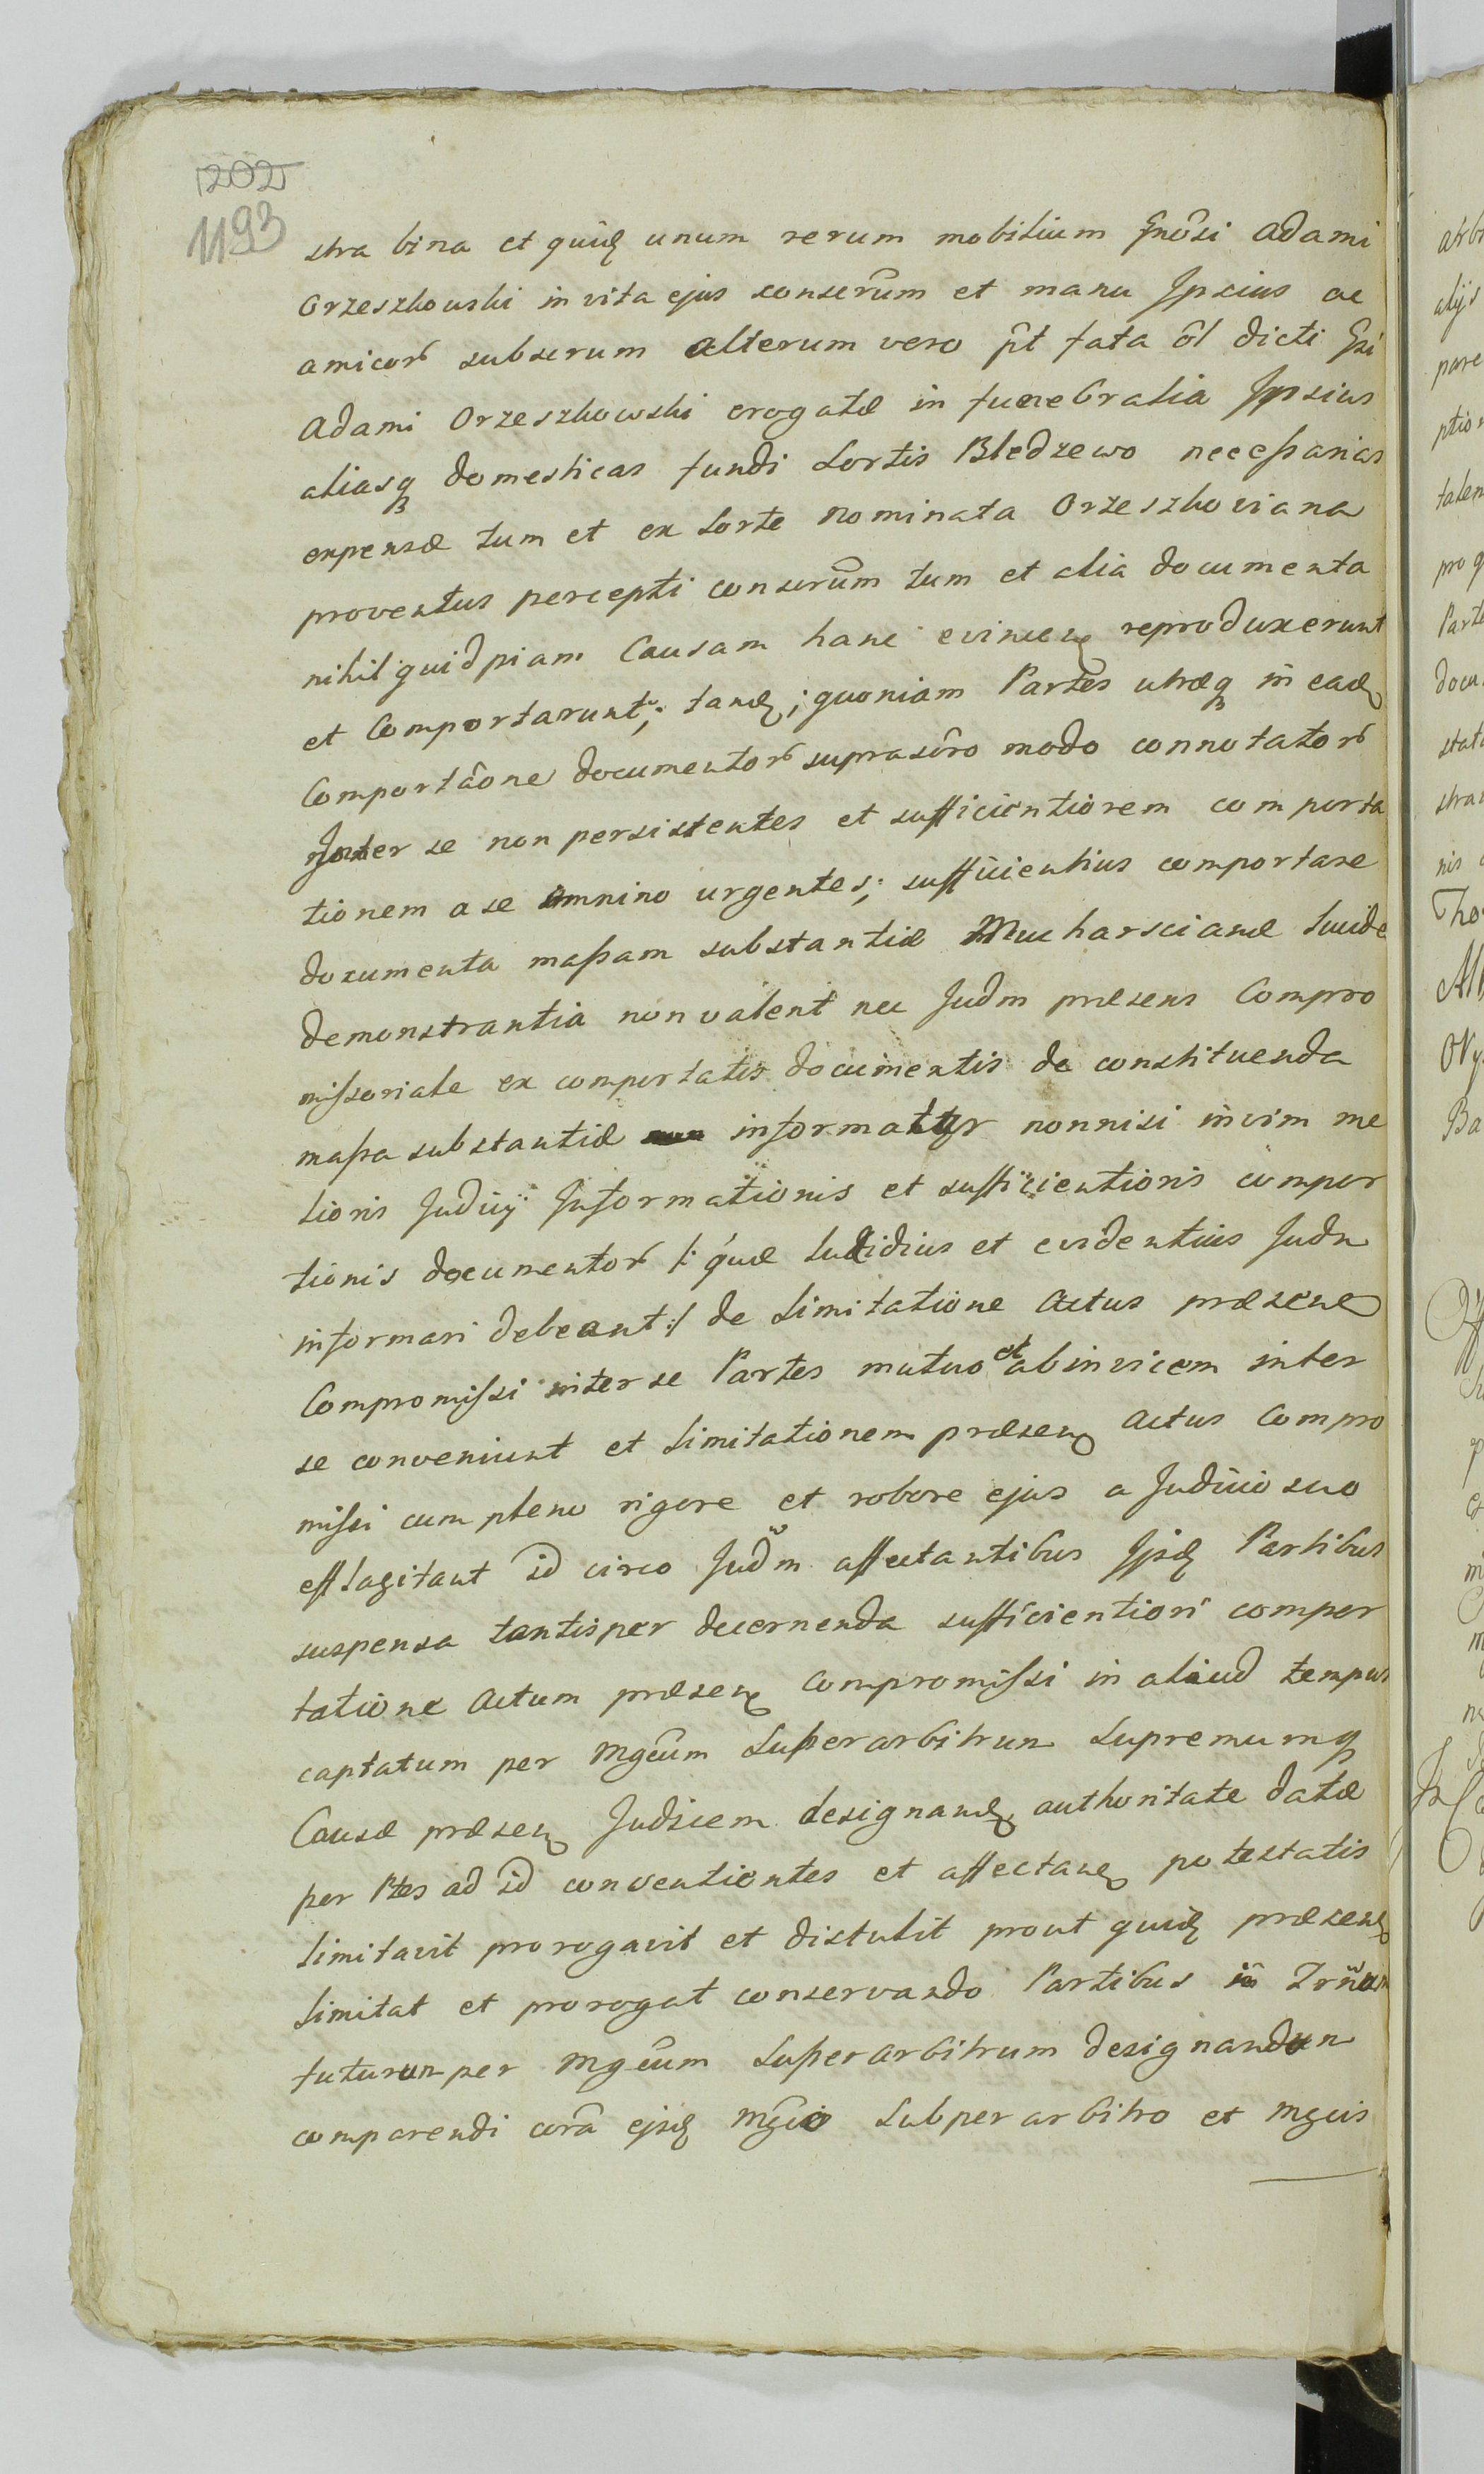 1202
1193
stra bina et quidę unum rerum mobilium Gnôsi Adami
Orzeszkowski in vita ejus conserûm et manu Ipsius ac
amicor̃ subserum alterum vero p̂t fata ôl dicti Gsi
Adami Orzeszkowski erogatæ in funebralia Ipsius
aliasq̨ domesticas fundi Sortis Bledzewo necessarias
expensæ tum et ex Sorte nominata Orzeszkoviana
proventus percepti conserûm tum et alia documenta
nihil quidpiam Causam hanc evincen̨ reproduxerunt
et Comportarunt; tandę; quoniam Partes utræq̨ in eadę
Comportâone documentor̃ suprascr̂o modo connotator̃
Inter se non persistentes et sufficientiorem comporta
tionem a se omnino urgentes; sufficientius comportare
documenta massam substantiæ Mucharscianæ lucide
demonstrantia non valent nec Judm præsens Compro
missoriale ex comportatis documentis de constituenda
massa substantiæ informatur nonnisi in vim me
lioris Judicij Informationis et sufficientioris compor
tionis documentor̃ /: quæ lucidius et evidentius Judm
informari debeant :/ de limitatione Actus præsen̨
Compromissi inter se Partes mutuo et ab invicem inter
se conveniunt et limitationem præsen̨ Actus Compro
missi cum pleno rigore et robore ejus a Judicio suo
efflagitant id circo Jud̃m affectantibus Ipsdę Partibus
suspensa tantisper decernenda sufficientiori compor
tatione Actum præsen̨ compromissi in aliud tempus
captatum per Mgcûm Superarbitrum Supremumq̨
Causæ præsen̨ Judicem designandę authoritate datæ
per Ptes ad id conventientes et affectan̨ potestatis
limitavit prorogavit et distulit prout quidę præsen̨
limitat et prorogat conservando Partibus in Trñum
futurum per Mgcûm Superarbitrum designandum
comparendi corâ ejsdę Mgcô Subperarbitro et Mgcis